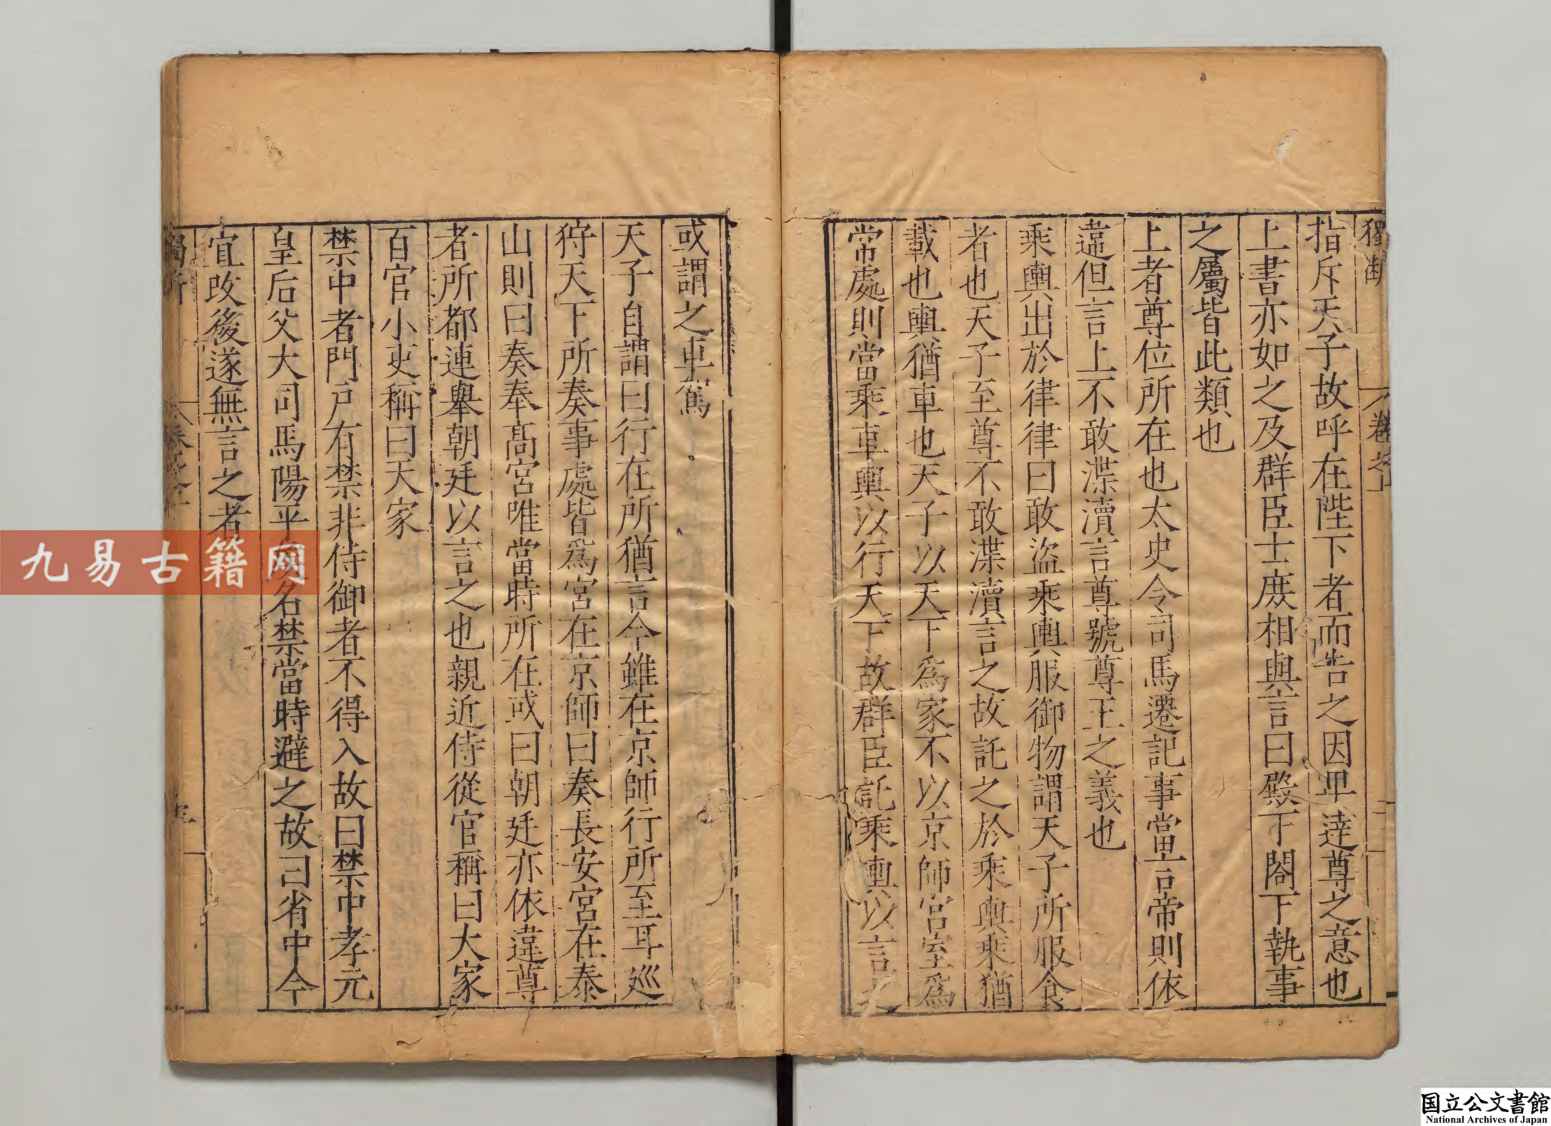 獨斷 卷之上
指斥天子故呼在陛下者而告之因卑達尊之意也
上書亦如之及群臣士庶相與言曰殿下閤下執事
之屬皆此類也
上者尊位所在也太史令司馬遷記事當言帝則依
違但言上不敢渫瀆言尊號尊王之義也
乘輿出於律律曰敢盜乘輿服御物謂天子所服食
者也天子至尊不敢渫瀆言之故託之於乘輿乘猶
載也輿猶車也天子以天下爲家不以京師宮室爲
常處則當乘車輿以行天下故群臣託乘輿以言之
或謂之車駕
天子自謂曰行在所猶言今雖在京師行所至耳巡
狩天下所奏事處皆爲宮在京師曰奏長安宮在泰
山則曰奏奉高宮唯當時所在或曰朝廷亦依違尊
者所都連舉朝廷以言之也親近侍從官稱曰大家
百官小吏稱曰天家
禁中者門戶有禁非侍御者不得入故曰禁中孝元
皇后父大司馬陽平名禁當時避之故曰省中今
宜改後遂無言之者
九易古籍网
国立公文書館
National Archives of Japan